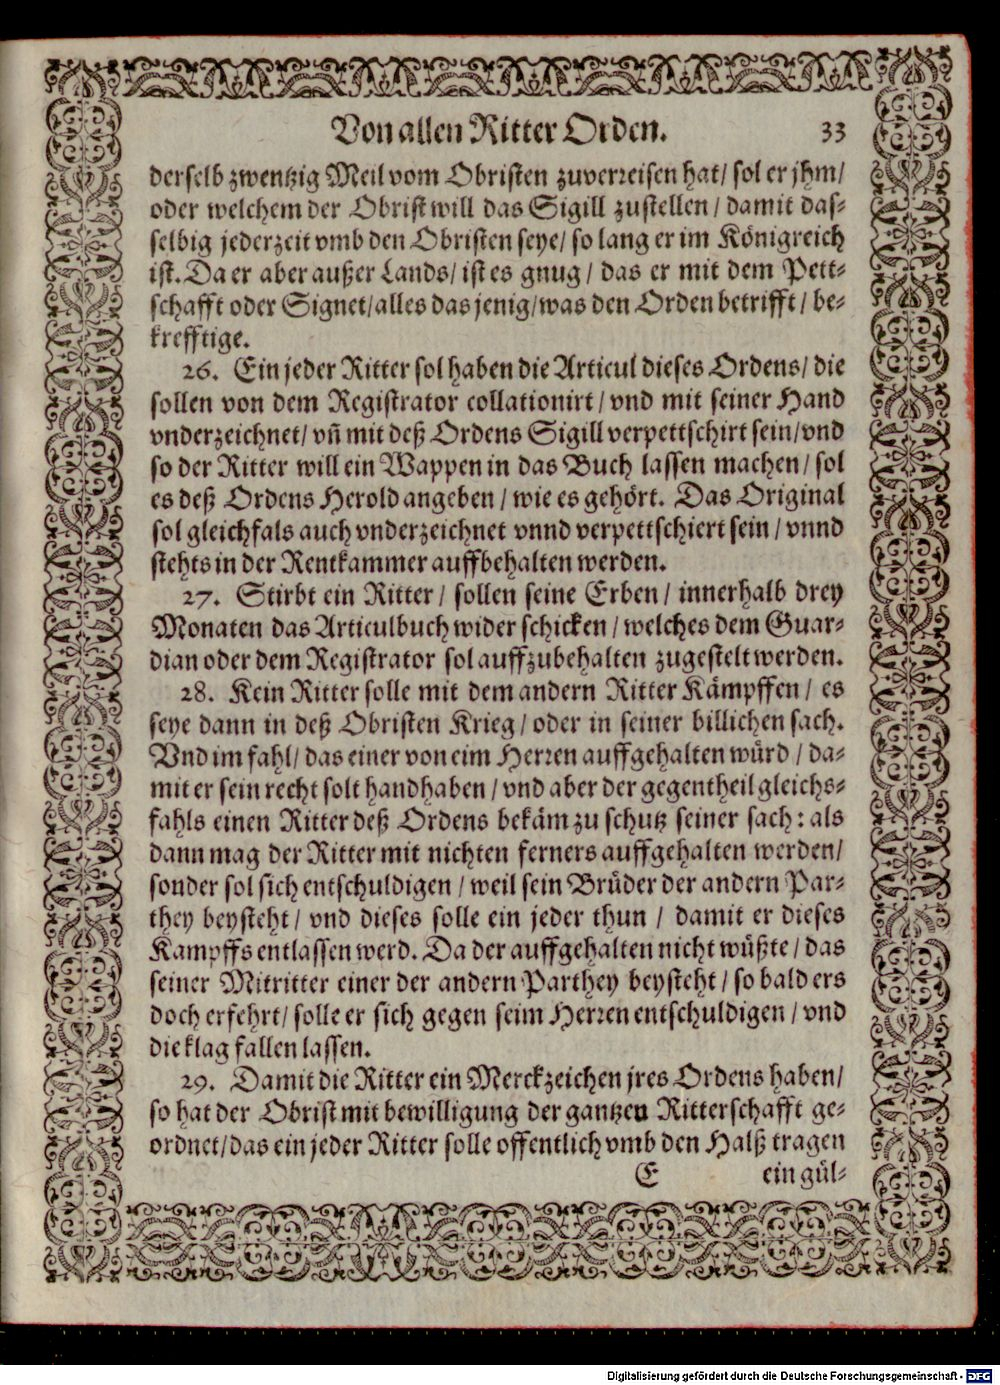 Von allen Ritter Orden. 33
derselb zwentzig Meil vom Obristen zuverreisen hat/ sol er jhm/
oder welchem der Obrist will das Sigill zustellen / damit das-
selbig jederzeit vmb den Obristen seye/ so lang er im Königreich
ist. Da er aber außer Lands/ ist es gnug / das er mit dem Pett-
schafft oder Signet/alles das jenig/was den Orden betrifft / be-
krefftige.
26. Ein jeder Ritter sol haben die Articul dieses Ordens/ die
sollen von dem Registrator collationirt / vnd mit seiner Hand
vnderzeichnet/ vñ mit deß Ordens Sigill verpettschirt sein/vnd
so der Ritter will ein Wappen in das Buch lassen machen/ sol
es deß Ordens Herold angeben / wie es gehört. Das Original
sol gleichfals auch vnderzeichnet vnnd verpettschiert sein / vnnd
stehts in der Rentkammer auffbehalten werden.
27. Stirbt ein Ritter / sollen seine Erben / innerhalb drey
Monaten das Articulbuch wider schicken / welches dem Guar-
dian oder dem Registrator sol auffzubehalten zugestelt werden.
28. Kein Ritter solle mit dem andern Ritter Kämpffen / es
seye dann in deß Obristen Krieg / oder in seiner billichen sach.
Vnd im fahl/ das einer von eim Herren auffgehalten würd / da-
mit er sein recht solt handhaben / vnd aber der gegentheil gleichs-
fahls einen Ritter deß Ordens bekäm zu schutz seiner sach : als
dann mag der Ritter mit nichten ferners auffgehalten werden/
sonder sol sich entschuldigen / weil sein Brüder der andern Par-
they beysteht / vnd dieses solle ein jeder thun / damit er dieses
Kampffs entlassen werd. Da der auffgehalten nicht wüßte / das
seiner Mitritter einer der andern Parthey beysteht / so bald ers
doch erfehrt/ solle er sich gegen seim Herren entschuldigen / vnd
die klag fallen lassen.
29. Damit die Ritter ein Merckzeichen jres Ordens haben/
so hat der Obrist mit bewilligung der gantzen Ritterschafft ge-
ordnet/das ein jeder Ritter solle offentlich vmb den Halß tragen
E ein gül-
Digitalisierung gefördert durch die Deutsche Forschungsgemeinschaft - DFG